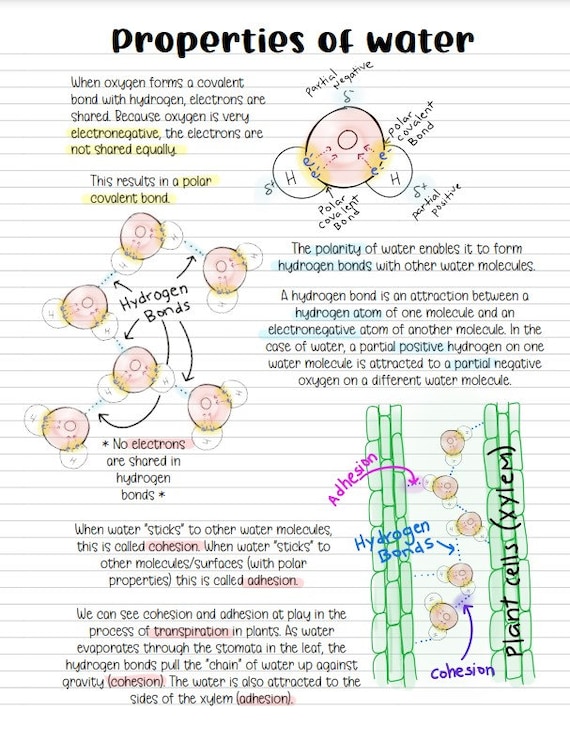 Properties of water
When oxygen forms a covalent
bond with hydrogen, electrons are
shared. Because oxygen is very
electronegative, the electrons are
not shared equally.
This results in a polar
covalent bond.
Partial
Negative
δ-
Polar
covalent
Bond
O
e-
e-
e-
e-
H
H
δ+
δ+
Partial
positive
Polar
covalent
Bond
Hydrogen
Bonds
The polarity of water enables it to form
hydrogen bonds with other water molecules.
A hydrogen bond is an attraction between a
hydrogen atom of one molecule and an
electronegative atom of another molecule. In the
case of water, a partial positive hydrogen on one
water molecule is attracted to a partial negative
oxygen on a different water molecule.
* No electrons
are shared in
hydrogen
bonds *
When water "sticks" to other water molecules,
this is called cohesion. When water "sticks" to
other molecules/surfaces (with polar
properties) this is called adhesion.
We can see cohesion and adhesion at play in the
process of transpiration in plants. As water
evaporates through the stomata in the leaf, the
hydrogen bonds pull the "chain" of water up against
gravity (cohesion). The water is also attracted to the
sides of the xylem (adhesion).
Adhesion
Hydrogen
Bonds
cohesion
Plant cells (xylem)